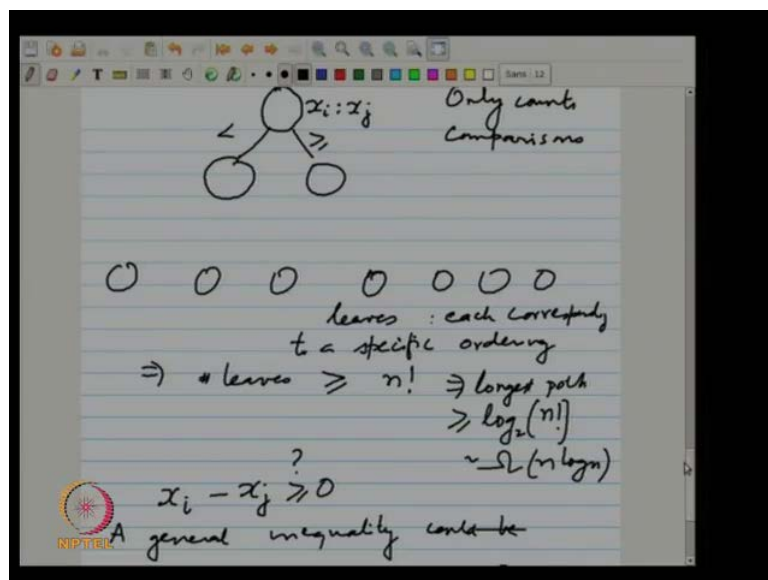 Sans 12
x_i : x_j Only counts
< ≥ comparisons
leaves : each corresponds
to a specific ordering
⇒ # leaves ≥ n! ⇒ longest path
≥ log₂(n!)
~ Ω(n log n)
?
x_i − x_j ≥ 0
A general inequality could be
NPTEL